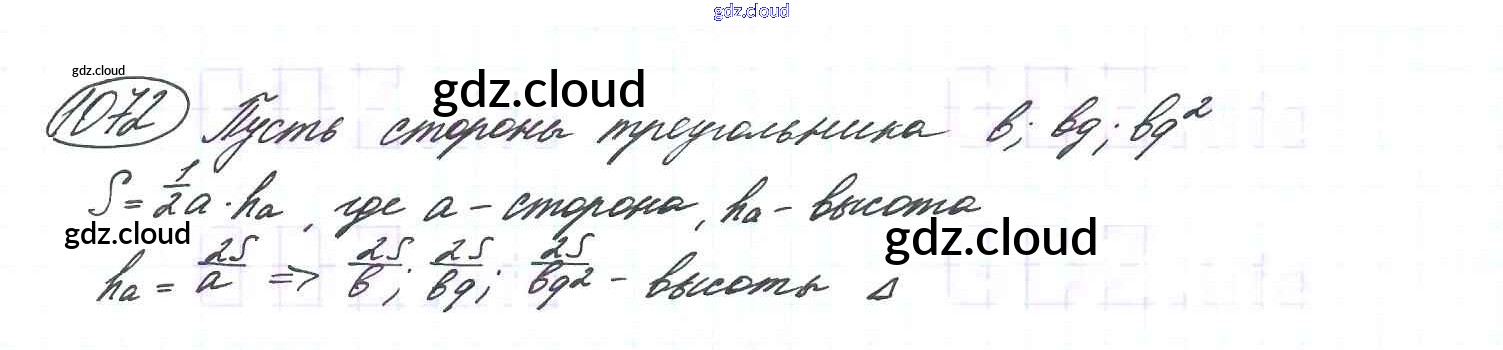 gdz.cloud
gdz.cloud
gdz.cloud
1072 Пусть стороны треугольника b; bq; bq²
S = 1/2 a · hₐ, где a - сторона, hₐ - высота
gdz.cloud
gdz.cloud
hₐ = 2S/a => 2S/b; 2S/bq; 2S/bq² - высоты Δ